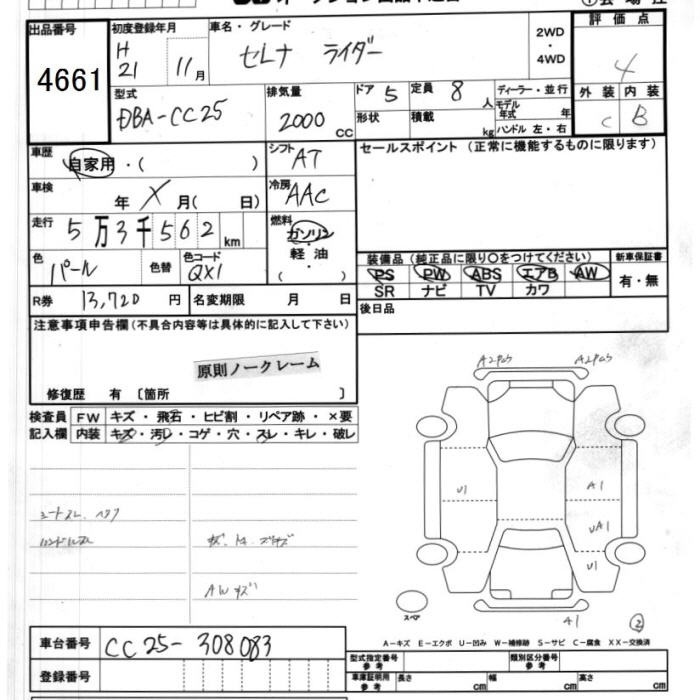 出品番号
4661
初度登録年月
H
21 11月
車名・グレード
セレナ ライダー
2WD
・
4WD
評価点
4
外装 内装
C B
型式
DBA-CC25
排気量
2000 cc
ドア 5
定員 8 人
形状
積載 kg
ディーラー・並行
モデル年式 年
ハンドル 左・右
車歴
自家用・( )
シフト
AT
セールスポイント(正常に機能するものに限ります)
車検
年 X 月( 日)
冷房
AAC
走行
5万3千562km
燃料
ガソリン
・
軽油
( )
色
パール
色替
色コード
QX1
装備品(純正品に限り○をつけてください)
PS PW ABS エアB AW
SR ナビ TV カワ
新車保証書
有・無
R券 13,720 円
名変期限 月 日
後日品
注意事項申告欄(不具合内容等は具体的に記入して下さい)
原則ノークレーム
修復歴 有 〔箇所 〕
検査員
記入欄
FW キズ・飛石・ヒビ割・リペア跡・×要
内装 キズ・汚レ・コゲ・穴・スレ・キレ・破レ
シートスレ、ヘタリ
ハンドルスレ
AWキズ
U1
A1
UA1
U1
A1
スペア
②
A-キズ E-エクボ U-凹み W-補修跡 S-サビ C-腐食 XX-交換済
車台番号 CC25-308083
登録番号
型式指定番号
参考
類別区分番号
参考
車庫証明用
参考
長さ cm
幅 cm
高さ cm